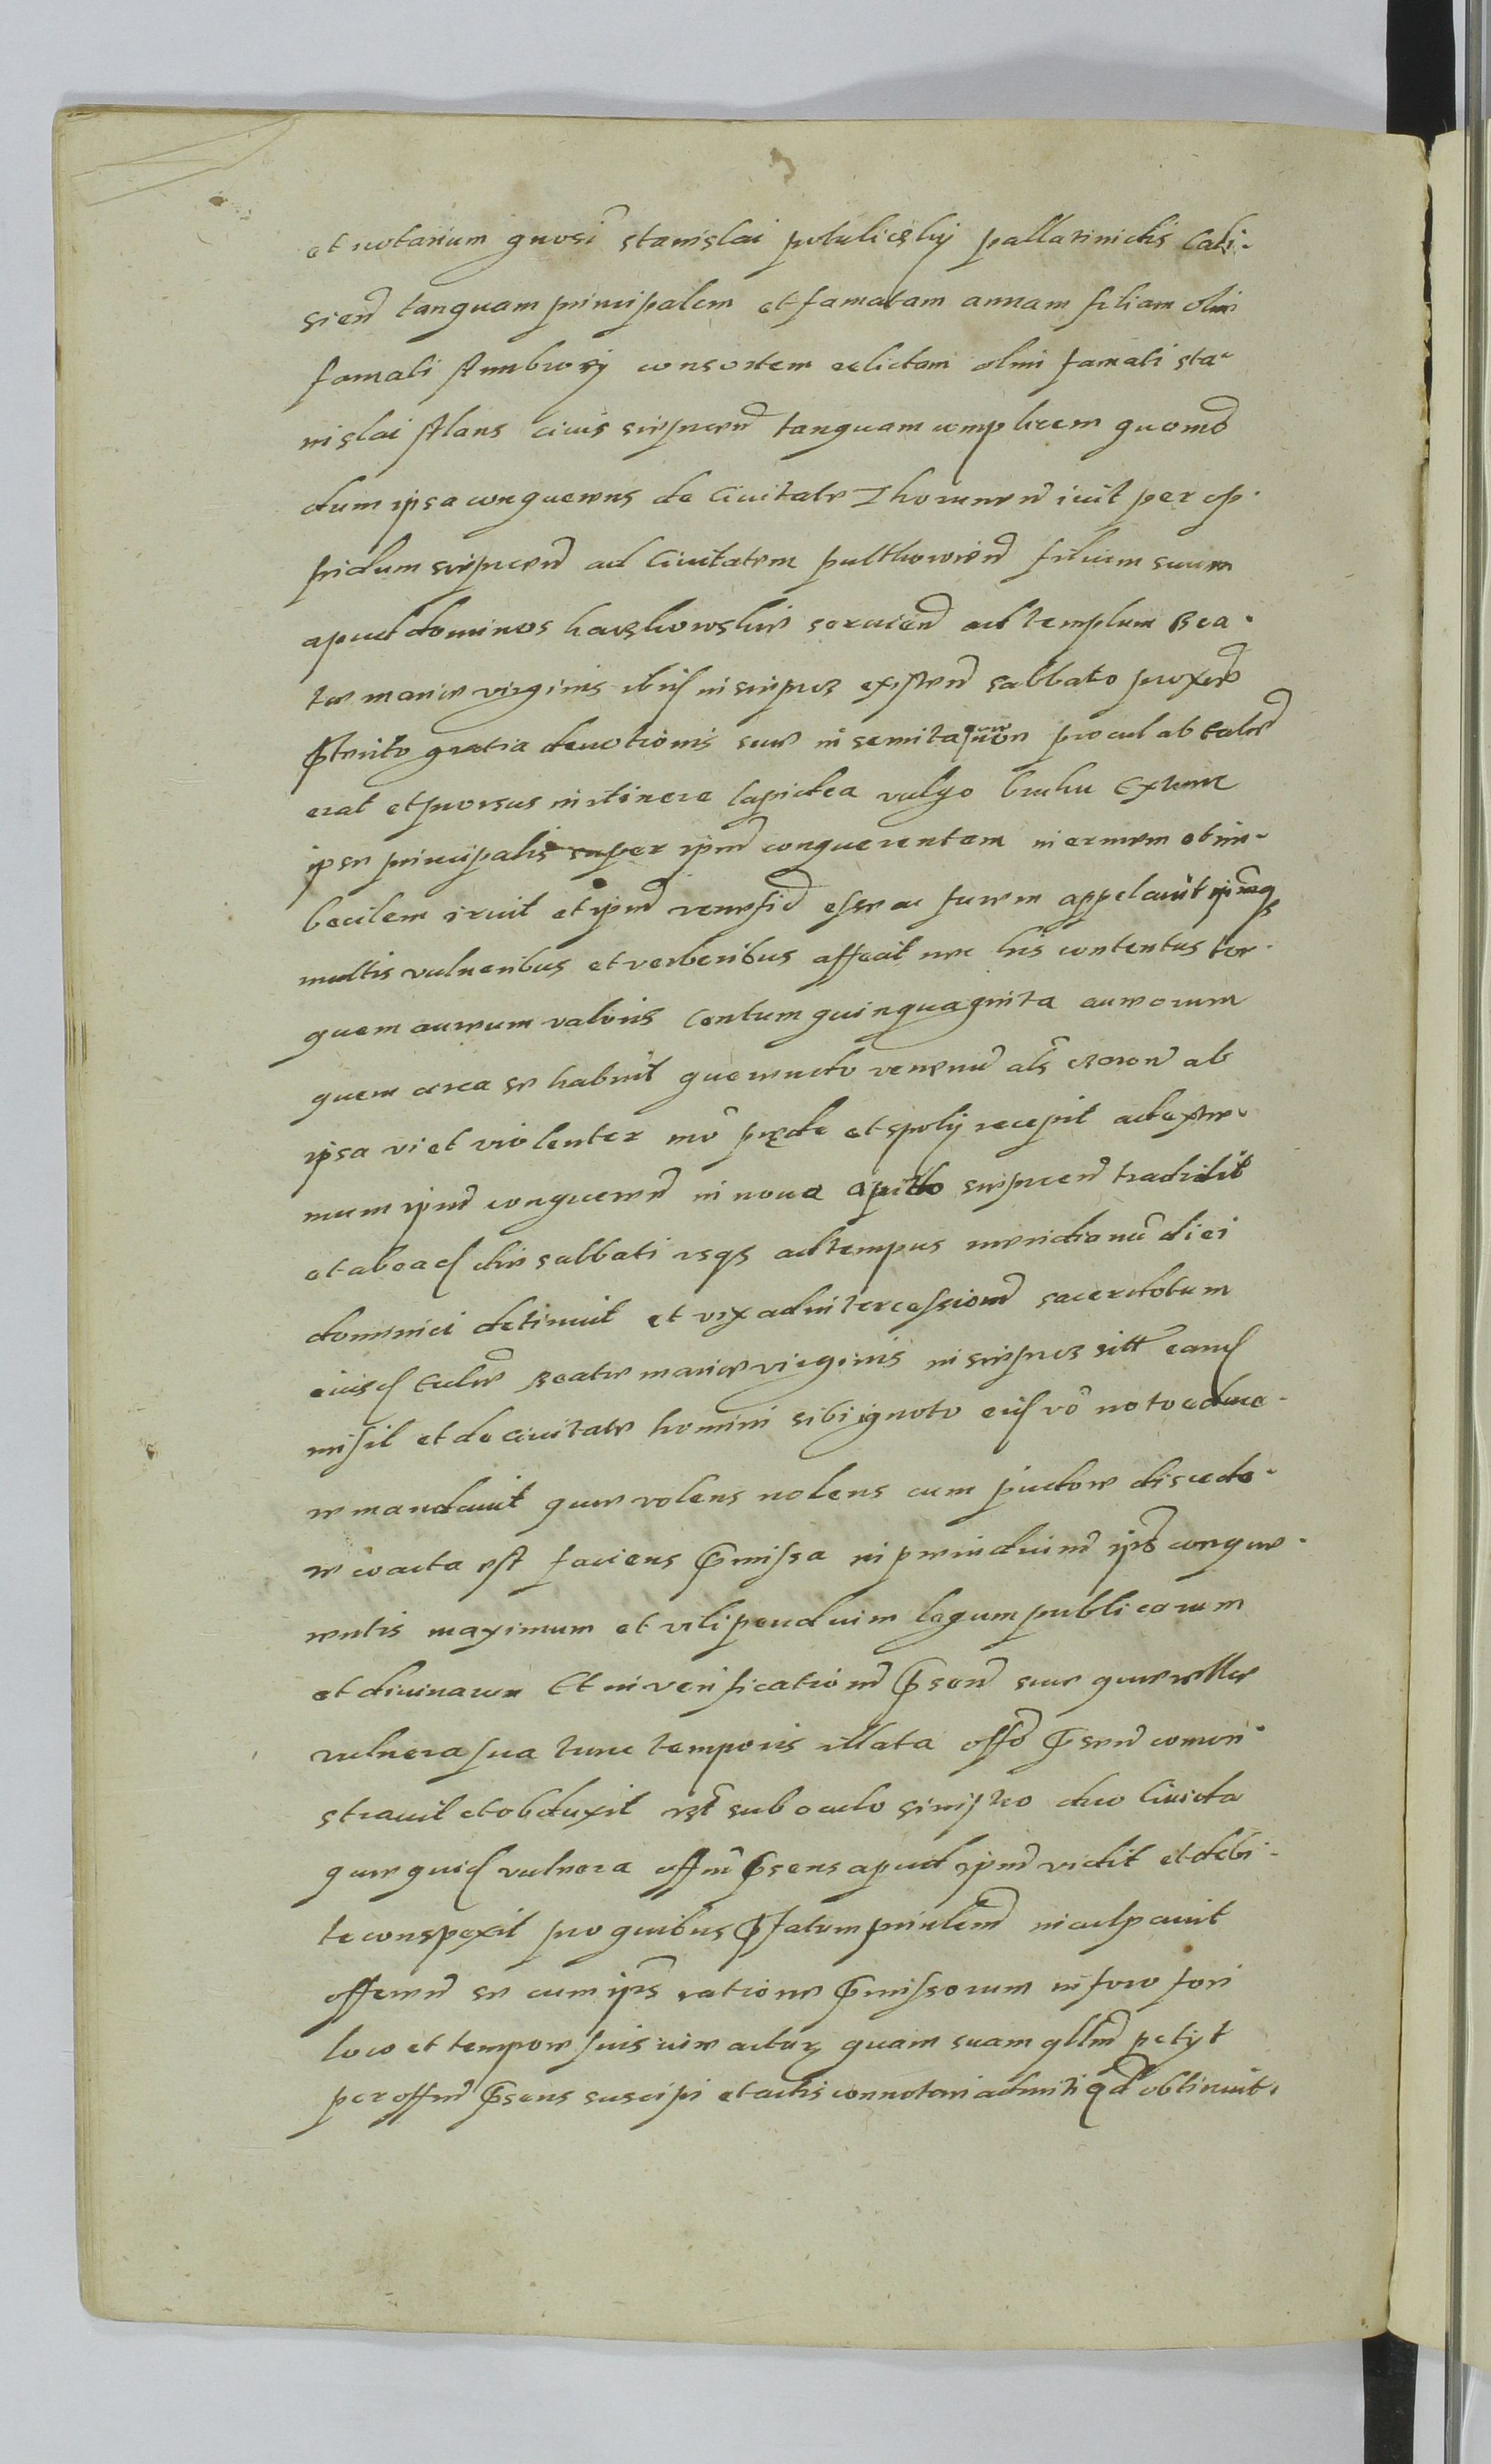 et notarium gnosi stanislai potulicsky pallatinidis Cali-
sien tanquam principalem et famatam annam filiam olim
famati Ambrosy consortem relictam olim famati sta-
nislai Alans ciuis sierpcen tanquam complicem quomd
dum ipsa conquerens de Ciuitate Thorunen iuit per op-
pidum sierpcen ad Ciuitatem pulthowien filium suum
apud dominos karskowskie seruien ad templum Bea-
tae mariae virginis ibid in sierpcz existen sabbato proxime
pterito gratia deuotionis suae in semita quae non procul ab eccle
erat et prorsus in itinere lapidea vulgo bruku Ex tunc
ipse principalis super ipm conquerentem inermem et im-
becilem iruit et ipm venefid esse ac furem appelauit ipmq
multis vulneribus et verberibus affecit nec his contentus tor-
quem aureum valoris Centum quinquaginta aureorum
quem circa se habuit ab
ipsa vi et violenter mo prede et spoly recepit ad extre-
mum ipm conqueren in noua opido sierpcen tradidit
et ab ead die sabbati usqs ad tempus meridianu diei
dominici detinuit et vix ad intercessione sacerdotum
eiusd eccle Beatae mariae virginis in sierpcz sitt eand
misit et de ciuitate homini sibi ignoto eid vo noto educe-
re mandauit quae volens nolens cum pudore discede-
re coacta est faciens pmissa in preiuduim ips conque-
rentis maximum et vilipenduim legum publicarum
et diuinarum Et in verificatione psen suae querellae
vulnera sua tunc temporis illata offo psen comon-
strauit et obduxit ut sub oculo sinistro duo liuida
quae quid vulnera offm psens apud ipm vidit et debi-
te conspexit pro quibus pfatum prinlem inculpauit
offeren se cum ips ratione pmissorum in foro fori
loco et tempore suis iure actur quam suam qllm petyt
per offm psens suscipi et actis connotari admiti qd obtinuit.